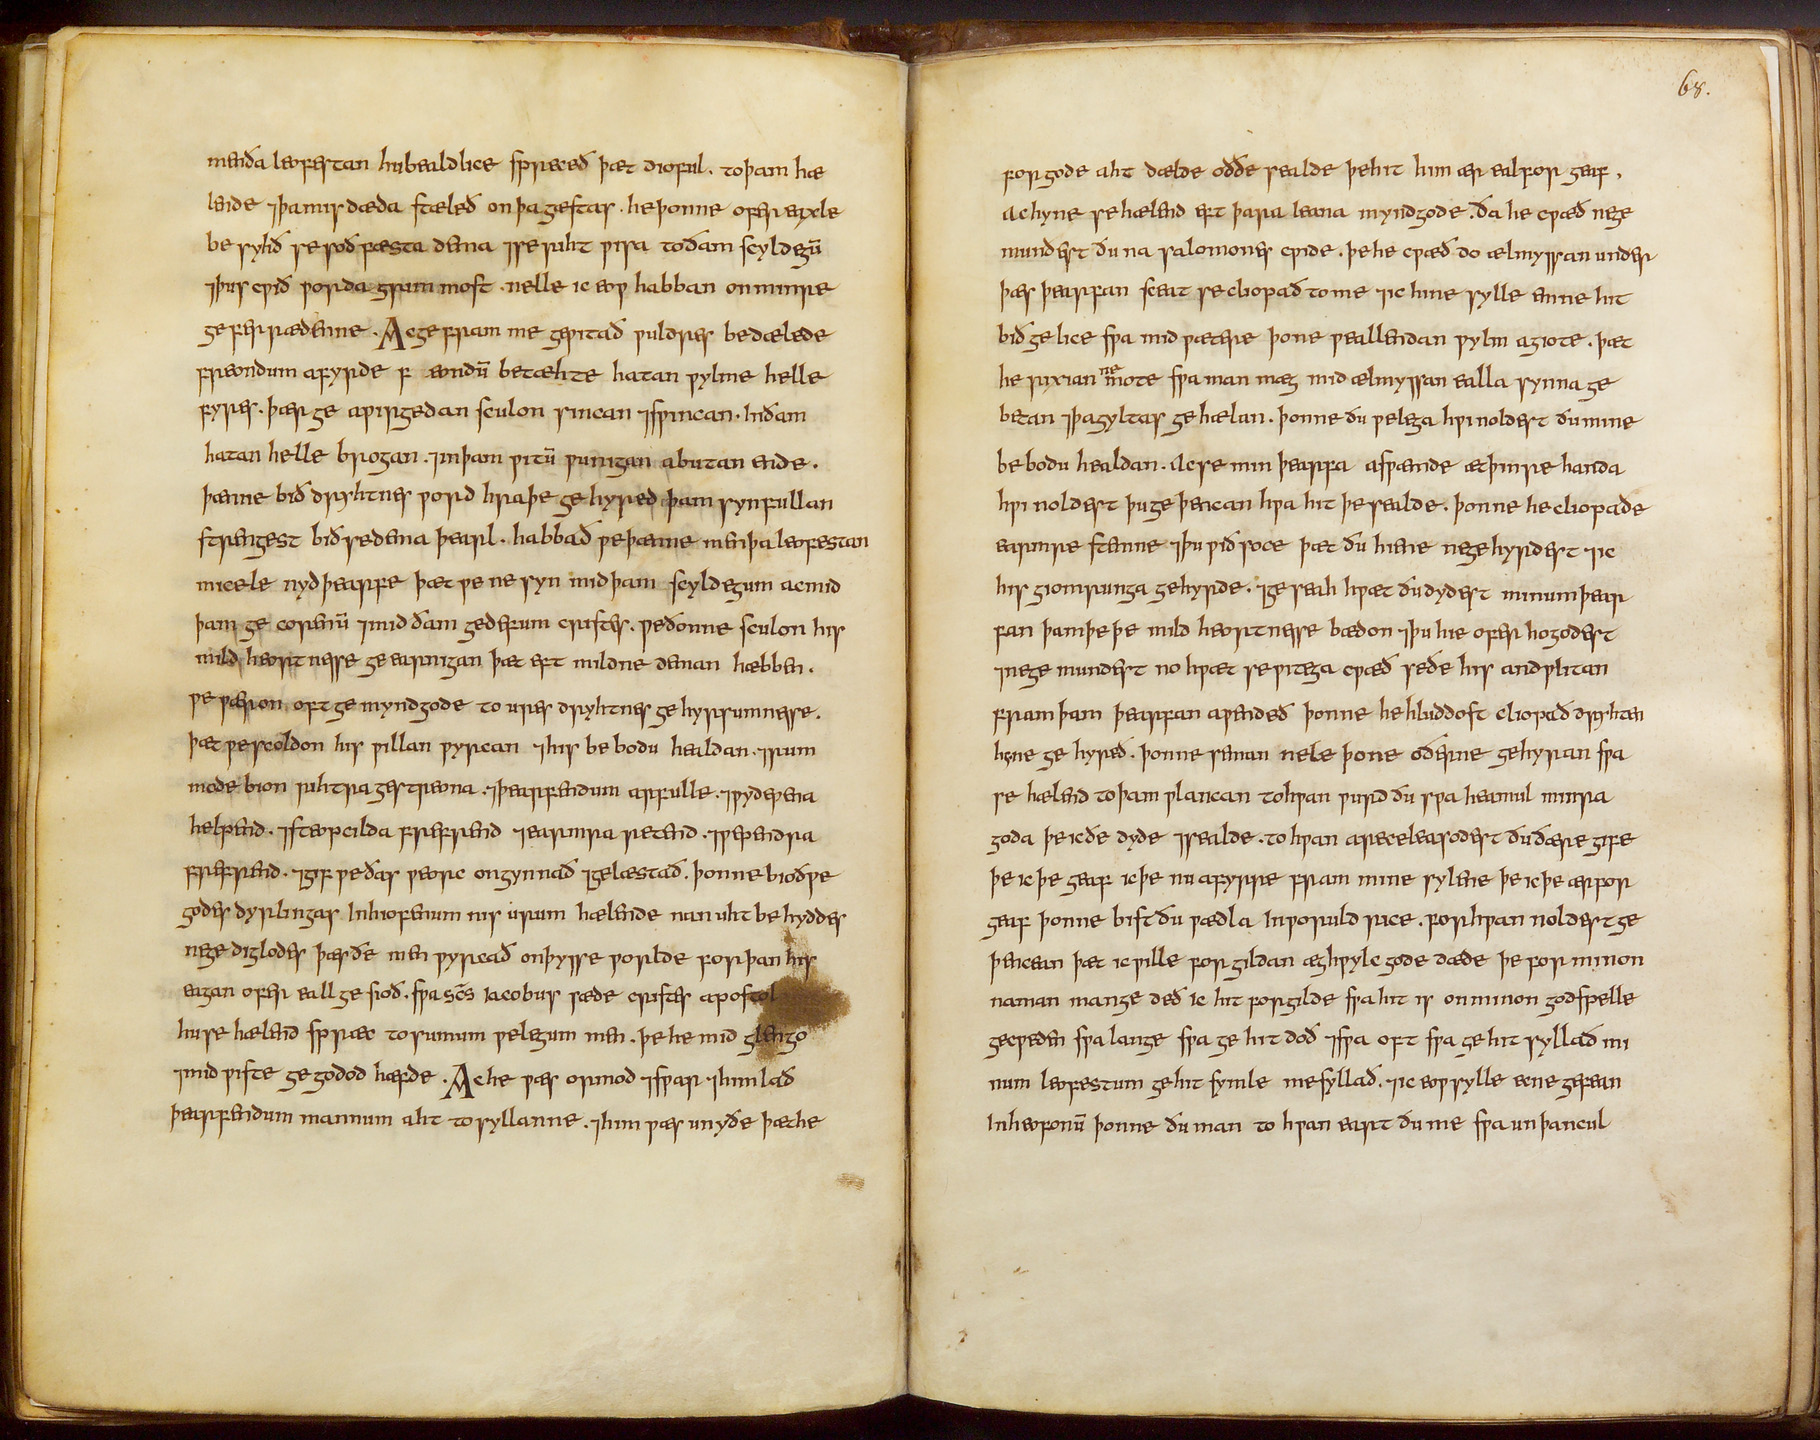 menða leofestan hu bealdlice spriceð þæt dioful . to þam hæ
lende ⁊ þa misdæda stæleð on þa gæstas . he þonne ofer eaxle
besyhð se soðfæsta dema ⁊ se rihtwisa to ðam scyldegū
⁊ þus cwið worda grimmost . nelle ic eow habban on minre
geferrædenne . Ac ge fram me gewitað wuldres bedælede
freondum afyrde feondū betæhte hatan wylme helle
fyres . þær ge awirgedan sculon sincan ⁊ swincan . in ðam
hatan helle brogan . ⁊ in þam witū wunigan abutan ende .
þænne bið dryhtnes word hraþe gehyred þam synfullan
strengest bið se dema þearl . habbað we þænne men þa leofestan
micele nydþearfe þæt we ne syn mid þam scyldegum ac mid
þam gecorenū ⁊ mid ðam gedefum cristes . we ðonne sculon his
mildheortnesse geearnigan þæt eft mildne deman hæbben .
we wæron oft gemyndgode to ures dryhtnes gehyrsumnesse .
þæt we sceoldon his willan wyrcan ⁊ his bebodu healdan . ⁊ rum
mode bion rihtra gestreona . ⁊ þearfendum arfulle . ⁊ wydewena
helpend . ⁊ steopcilda frefrend ⁊ earmra retend . ⁊ wependra
frefrend . ⁊ gif we ðas weorc ongynnað ⁊ gelæstað . þonne bioð we
godes dyrlingas in hiofenum nis urum hælende nan uht behyddes
ne ge digledes þæs ðe men wyrcað on þysse worlde for þan his
eagan ofer eall gesioð . swa sc̄s iacobus sæde cristes apostol
hu se hælend spræc to sumum welegum men . þe he mid glengo
⁊ mid wiste gegodod hæfde . Ac he wæs ormod ⁊ spær ⁊ him lað
þearfendum mannum aht to syllanne . ⁊ him wæs unyðe þæt he
68.
for gode aht dælde oððe sealde þe hit him ær eal for geaf ,
Ac hyne se hælend eft þara leana myndgode . ða he cwæð ne ge
mundest ðu na salomones cwide . þe he cwæð do ælmyssan under
þæs þearfan sceat se cliopað to me ⁊ ic hine sylle anne hit
bið gelice swa mid wætere þone weallendan wylm agiote . þæt
he rixian ne mote swa man mæg mid ælmyssan ealla synna ge
betan ⁊ þa gyltas gehælan . þonne ðu welega hwi noldest ðu mine
bebodu healdan . Ac se min þearfa aswænde æt þinre handa
hwi noldest þu geþencan hwa hit þe sealde . þonne he cliopade
earmre stemne ⁊ þu wiðsoce þæt ðu hine ne gehyrdest ⁊ ic
his giomrunga gehyrde . ⁊ geseah hwæt ðu dydest minum þear
fan þam þe þe mildheortnesse bædon ⁊ þu hie oferhogodest
⁊ ne gemundest no hwæt se witega cwæð se ðe his andwlitan
fram þam þearfan awendeð þonne he hluddost cliopað dryhten
hyne gehyreð . þonne seman nele þone oðerne gehyran swa
se hælend to þam wlancan to hwan wurd ðu swa heamul minra
goda þe ic ðe dyde ⁊ sealde . to hwan areceleasodest ðu ðære gife
þe ic þe geaf ic þe nu afyrre fram mine sylene þe ic þe ær for
geaf þonne bist ðu wædla in woruldrice . for hwan noldest ge
þencean þæt ic wille forgildan æghwylc gode dæde þe for minon
naman mange deð ic hit forgilde swa hit is on minon godspelle
gecweden swa lange swa ge hit doð ⁊ swa oft swa ge hit syllað mi
num leofestum ge hit symle me syllað . ⁊ ic eow sylle ece gefean
In heofonū þonne ðu man to hwan eart ðu me swa unþancul